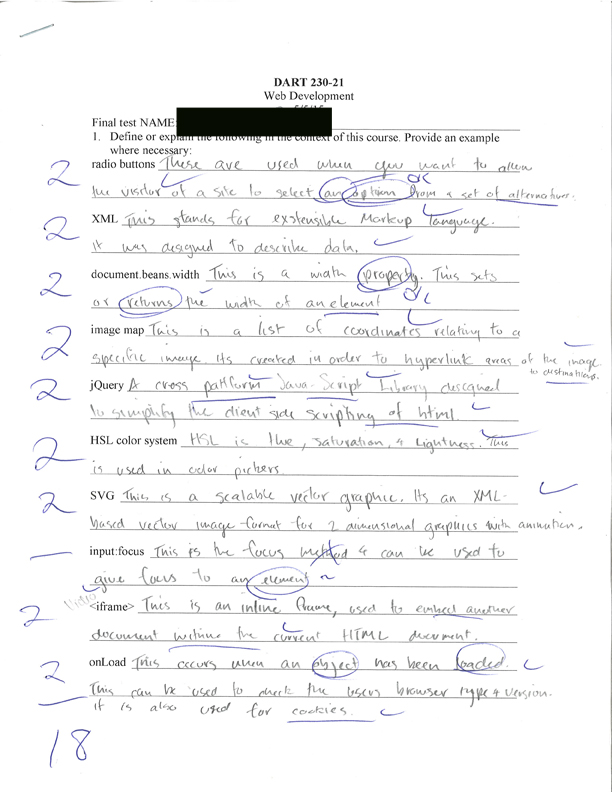 DART 230-21
Web Development
Final test NAME:
1. Define or explain the following in the context of this course. Provide an example
where necessary:
2 radio buttons These are used when you want to allow
the visitor of a site to select an option from a set of alternatives.
2 XML This stands for exstensible Markup Language.
it was designed to describe data.
2 document.beans.width This is a width property. This sets
or returns the width of an element
2 image map This is a list of coordinates relating to a
specific image. Its created in order to hyperlink areas of the image
to destinations.
2 jQuery A cross platform Java-Script Library designed
to simplify the client side scripting of html.
2 HSL color system HSL is Hue, Saturation, & Lightness. This
is used in color pickers
2 SVG This is a scalable vector graphic. Its an XML-
based vector image format for 2 dimensional graphics with animation.
input:focus This is the focus method & can be used to
give focus to an element
Video
2 <iframe> This is an inline frame, used to embed another
document withine the current HTML document.
2 onLoad This occurs when an object has been loaded.
This can be used to check the users browser type & version.
it is also used for cookies.
18